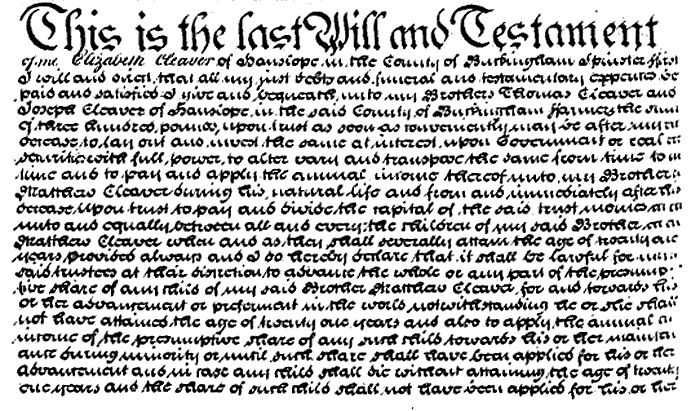 This is the last Will and Testament
of me Elizabeth Cleaver of Hanslope in the County of Buckingham Spinster first
I will and direct that all my just debts and funeral and testamentary expences be
paid and satisfied I give and bequeath unto my Brothers Thomas Cleaver and
Joseph Cleaver of Hanslope in the said County of Buckingham Farmers the sum
of three hundred pounds upon trust as soon as conveniently may be after my
decease to lay out and invest the same at interest upon Government or real
securities with full power to alter vary and transpose the same from time to
time and to pay and apply the annual income thereof unto my Brother
Matthew Cleaver during his natural life and from and immediately after his
decease upon trust to pay and divide the capital of the said trust monies
unto and equally between all and every the children of my said Brother
Matthew Cleaver when and as they shall severally attain the age of twenty one
years provided always and I do hereby declare that it shall be lawful for my
said trustees at their discretion to advance the whole or any part of the presump
tive share of any child of my said Brother Matthew Cleaver for and towards his
or her advancement or preferment in the world notwithstanding he or she shall
not have attained the age of twenty one years and also to apply the annual
income of the presumptive share of any such child towards his or her mainten
ance during minority or until such share shall have been applied for his or her
advancement and in case any child shall die without attaining the age of twenty
one years and the share of such child shall not have been applied for his or her